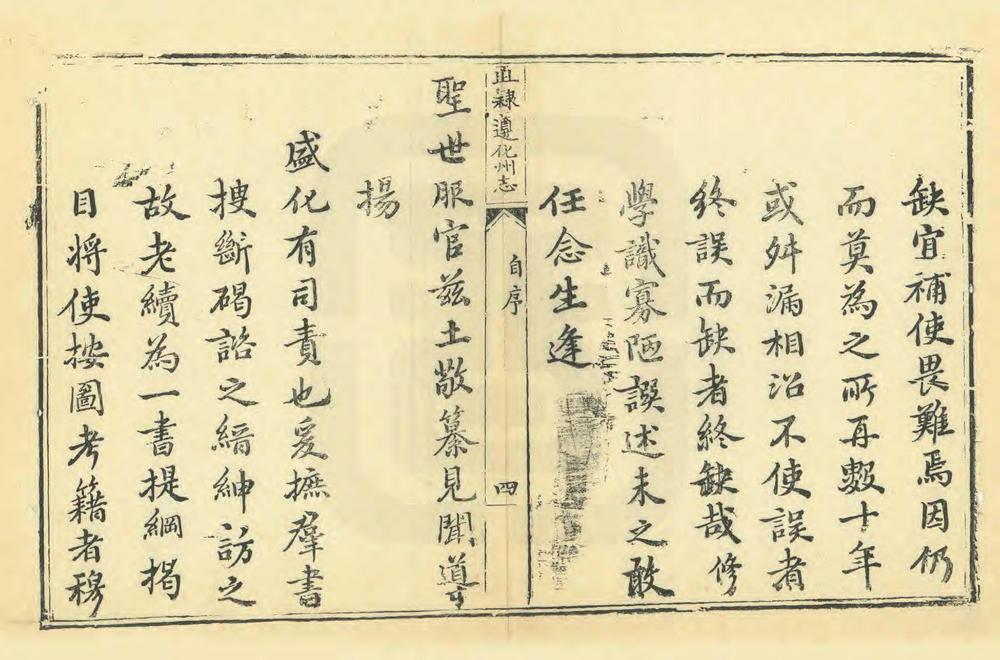 缺宜補使畏難焉因仍
而莫為之所再數十年
或舛漏相沿不使誤者
終誤而缺者終缺哉修
學識寡陋譔述未之敢
任念生逢
直隸遵化州志
自序
四
聖世服官茲土敬纂見聞導
揚
盛化有司責也爰摭羣書
搜斷碣諮之縉紳訪之
故老續為一書提綱揭
目將使按圖考籍者穆